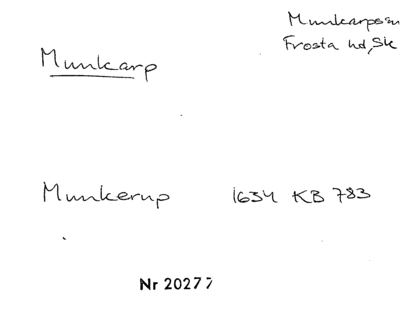 Munkarps sn
Frosta hd, Sk
Munkarp
Munkerup 1634 KB 783
Nr 20277